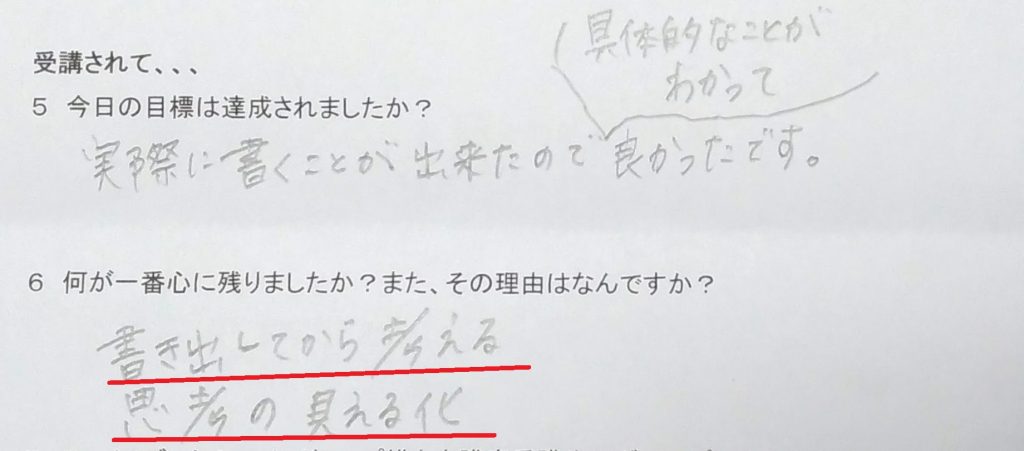 受講されて、、、
5 今日の目標は達成されましたか？
具体的なことが
わかって
実際に書くことが出来たので良かったです。
6 何が一番心に残りましたか？また、その理由はなんですか？
書き出してから考える
思考の見える化